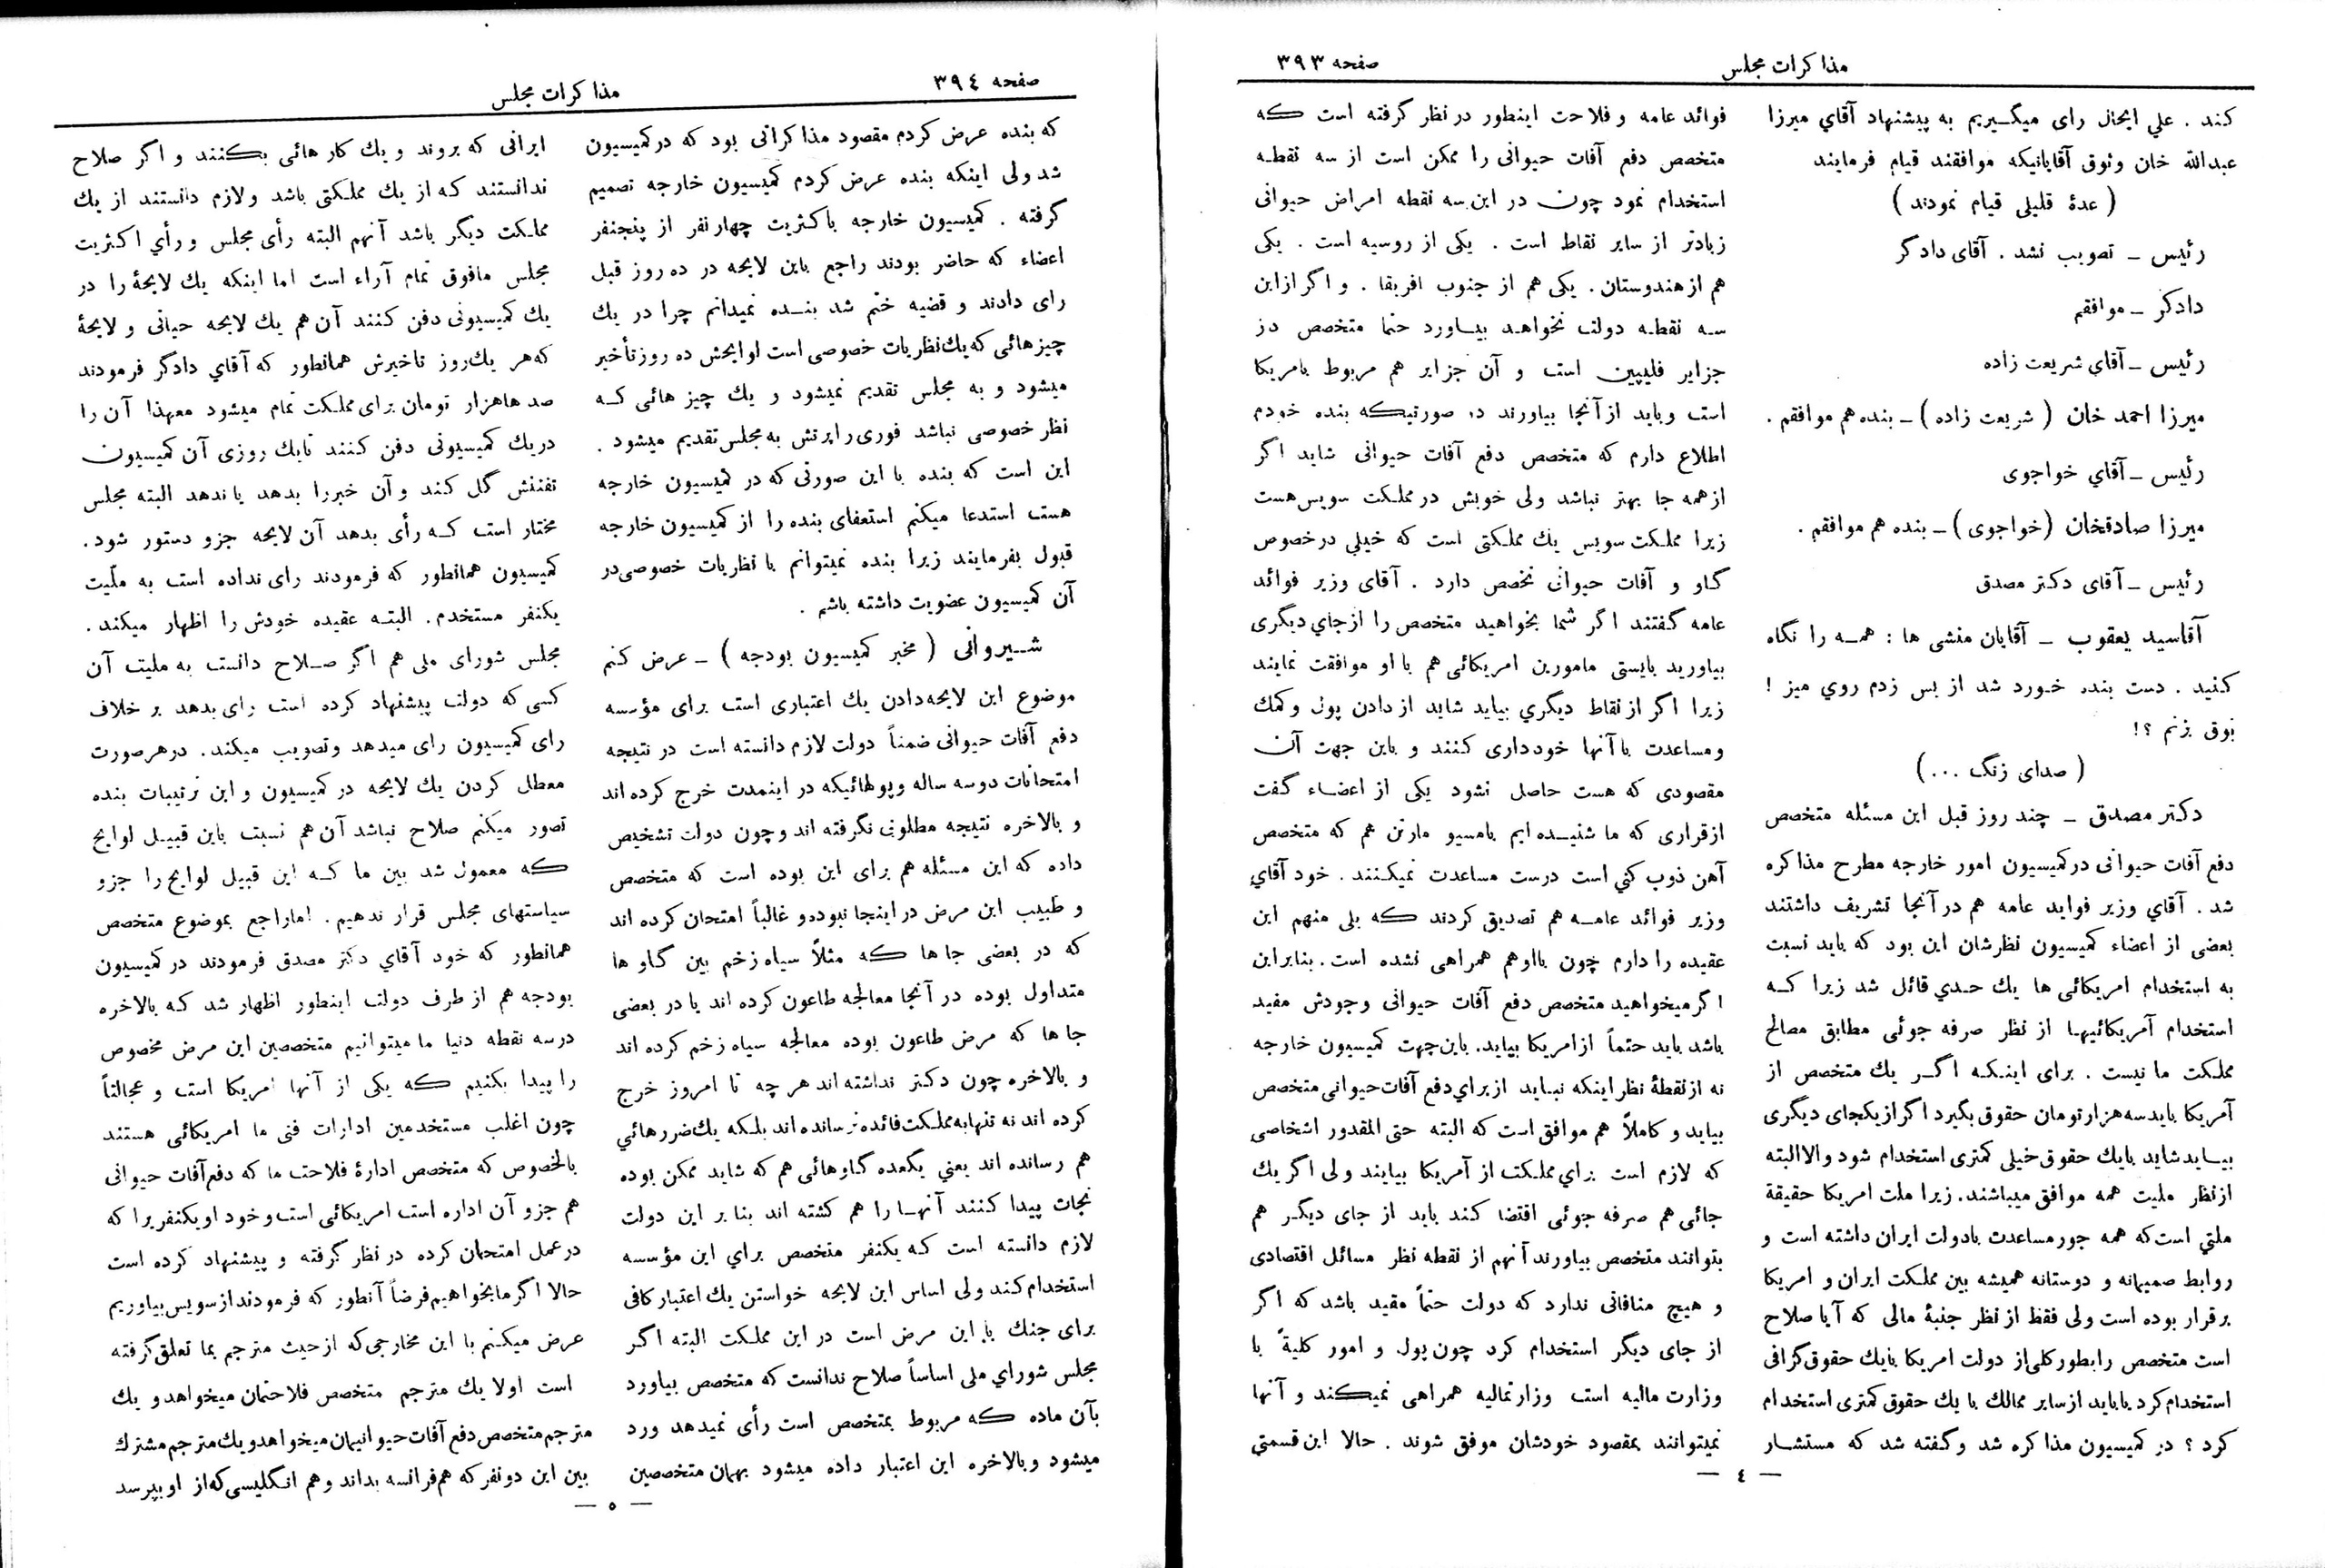 مذاکرات مجلس
صفحه ۳۹۳
کند . علي ایحال رای میگیریم به پیشنهاد آقاي میرزا
عبدالله خان وثوق آقایانیکه موافقند قیام فرمایند
( عدهٔ قلیلی قیام نمودند )
رئیس ـ تصویب نشد . آقای دادگر
دادگر ـ موافقم
رئیس ـ آقاي شریعت زاده
میرزا احمد خان ( شریعت زاده ) ـ بنده هم موافقم .
رئیس ـ آقاي خواجوی
میرزا صادقخان (خواجوی) ـ بنده هم موافقم .
رئیس ـ آقای دکتر مصدق
آقاسید یعقوب ـ آقایان منشی ها : همه را نگاه
کنید . دست بنده خورد شد از بس زدم روي میز !
بوق بزنم ؟!
( صدای زنگ ... )
دکتر مصدق ـ چند روز قبل این مسئله متخصص
دفع آفات حیوانی در کمیسیون امور خارجه مطرح مذاکره
شد . آقاي وزیر فواید عامه هم در آنجا تشریف داشتند
بعضی از اعضاء کمیسیون نظرشان این بود که باید نسبت
به استخدام امریکائی ها یك حدي قائل شد زیرا که
استخدام آمریکائیها از نظر صرفه جوئی مطابق مصالح
مملکت ما نیست . برای اینکه اگر یك متخصص از
آمریکا باید سه هزار تومان حقوق بگیرد اگر از یکجای دیگری
بیاید شاید بایك حقوق خیلی کمتری استخدام شود والا البته
از نظر ملیت همه موافق میباشند . زیرا ملت امریکا حقیقة
ملتي است که همه جور مساعدت بادولت ایران داشته است و
روابط صمیمانه و دوستانه همیشه بین مملکت ایران و امریکا
برقرار بوده است ولی فقط از نظر جنبهٔ مالی که آیا صلاح
است متخصص را بطور کلی از دولت امریکا بایك حقوق گزافی
استخدام کرد یا باید از سایر ممالك با یك حقوق کمتری استخدام
کرد ؟ در کمیسیون مذاکره شد و گفته شد که مستشار
فوائد عامه و فلاحت اینطور در نظر گرفته است که
متخصص دفع آفات حیوانی را ممکن است از سه نقطه
استخدام نمود چون در این سه نقطه امراض حیوانی
زیادتر از سایر نقاط است . یکی از روسیه است . یکی
هم از هندوستان . یکی هم از جنوب افریقا . و اگر از این
سه نقطه دولت نخواهد بیاورد حتما متخصص در
جزایر فلیپین است و آن جزایر هم مربوط بامریکا
است و باید از آنجا بیاورند در صورتیکه بنده خودم
اطلاع دارم که متخصص دفع آفات حیوانی شاید اگر
از همه جا بهتر نباشد ولی خوبش در مملکت سویس هست
زیرا مملکت سویس یك مملکتی است که خیلي در خصوص
گاو و آفات حیوانی تخصص دارد . آقای وزیر فوائد
عامه گفتند اگر شما بخواهید متخصص را از جاي دیگری
بیاورید بایستی مامورین امریکائی هم با او موافقت نمایند
زیرا اگر از نقاط دیگري بیاید شاید از دادن پول و کمك
و مساعدت با آنها خودداری کنند و باین جهت آن
مقصودی که هست حاصل نشود یکی از اعضاء گفت
از قراری که ما شنیده ایم بامسیو مارتن هم که متخصص
آهن ذوب کني است درست مساعدت نمیکنند . خود آقاي
وزیر فوائد عامه هم تصدیق کردند که بلی منهم این
عقیده را دارم چون بااوهم همراهی نشده است . بنابراین
اگر میخواهید متخصص دفع آفات حیوانی وجودش مفید
باشد باید حتماً از امریکا بیاید . باین جهت کمیسیون خارجه
نه از نقطهٔ نظر اینکه نباید از براي دفع آفات حیوانی متخصص
بیاید و کاملاً هم موافق است که البته حتی المقدور اشخاصی
که لازم است براي مملکت از آمریکا بیایند ولی اگر یك
جائی هم صرفه جوئی اقتضا کند باید از جای دیگر هم
بتوانند متخصص بیاورند آنهم از نقطه نظر مسائل اقتصادی
و هیچ منافاتی ندارد که دولت حتماً مقید باشد که اگر
از جای دیگر استخدام کرد چون پول و امور کلیةً با
وزارت مالیه است وزارتمالیه همراهی نمیکند و آنها
نمیتوانند بمقصود خودشان موفق شوند . حالا این قسمتي
— ٤ —
صفحه ۳۹٤
مذاکرات مجلس
که بنده عرض کردم مقصود مذاکراتی بود که در کمیسیون
شد ولی اینکه بنده عرض کردم کمیسیون خارجه تصمیم
گرفته . کمیسیون خارجه باکثریت چهار نفر از پنجنفر
اعضاء که حاضر بودند راجع باین لایحه در ده روز قبل
رای دادند و قضیه ختم شد بنده نمیدانم چرا در یك
چیزهائی که یك نظریات خصوصی است لوایحش ده روز تأخیر
میشود و به مجلس تقدیم نمیشود و یك چیز هائی که
نظر خصوصی نباشد فوری راپرتش به مجلس تقدیم میشود .
این است که بنده با این صورتی که در کمیسیون خارجه
هست استدعا میکنم استعفای بنده را از کمیسیون خارجه
قبول بفرمایند زیرا بنده نمیتوانم با نظریات خصوصی در
آن کمیسیون عضویت داشته باشم .
شیروانی ( مخبر کمیسیون بودجه ) ـ عرض کنم
موضوع این لایحه دادن یك اعتباری است برای مؤسسه
دفع آفات حیوانی ضمناً دولت لازم دانسته است در نتیجه
امتحانات دوسه ساله و پولهائیکه در اینمدت خرج کرده اند
و بالاخره نتیجه مطلوبی نگرفته اند و چون دولت تشخیص
داده که این مسئله هم برای این بوده است که متخصص
و طبیب این مرض در اینجا نبوده و غالباً امتحان کرده اند
که در بعضی جا ها که مثلاً سیاه زخم بین گاو ها
متداول بوده در آنجا معالجه طاعون کرده اند یا در بعضی
جا ها که مرض طاعون بوده معالجه سیاه زخم کرده اند
و بالاخره چون دکتر نداشته اند هر چه تا امروز خرج
کرده اند نه تنها به مملکت فائده نرسانده اند بلکه یك ضررهائي
هم رسانده اند یعني یکعده گاوهائی هم که شاید ممکن بوده
نجات پیدا کنند آنها را هم کشته اند بنا بر این دولت
لازم دانسته است که یکنفر متخصص براي این مؤسسه
استخدام کند ولی اساس این لایحه خواستن یك اعتبار کافی
برای جنك با این مرض است در این مملکت البته اگر
مجلس شوراي ملی اساساً صلاح ندانست که متخصص بیاورد
بآن ماده که مربوط بمتخصص است رأی نمیدهد ورد
میشود و بالاخره این اعتبار داده میشود بهمان متخصصین
ایرانی که بروند و یك کار هائی بکنند و اگر صلاح
ندانستند که از یك مملکتی باشد و لازم دانستند از یك
مملکت دیگر باشد آنهم البته رأی مجلس و رأي اکثریت
مجلس مافوق تمام آراء است اما اینکه یك لایحهٔ را در
یك کمیسیونی دفن کنند آن هم یك لایحه حیاتی و لایحهٔ
که هر یك روز تاخیرش همانطور که آقاي دادگر فرمودند
صد ها هزار تومان برای مملکت تمام میشود معهذا آن را
در یك کمیسیونی دفن کنند تا یك روزی آن کمیسیون
تفننش گل کند و آن خبر را بدهد یا ندهد البته مجلس
مختار است که رأی بدهد آن لایحه جزو دستور شود .
کمیسیون همانطور که فرمودند رای نداده است به ملّیت
یکنفر مستخدم . البته عقیده خودش را اظهار میکند .
مجلس شورای ملی هم اگر صلاح دانست به ملیت آن
کسی که دولت پیشنهاد کرده است رای بدهد بر خلاف
رای کمیسیون رای میدهد و تصویب میکند . در هر صورت
معطل کردن یك لایحه در کمیسیون و این ترتیبات بنده
تصور میکنم صلاح نباشد آن هم نسبت باین قبیل لوایح
که معمول شد بین ما که این قبیل لوایح را جزو
سیاستهای مجلس قرار ندهیم . اما راجع بموضوع متخصص
همانطور که خود آقاي دکتر مصدق فرمودند در کمیسیون
بودجه هم از طرف دولت اینطور اظهار شد که بالاخره
در سه نقطه دنیا ما میتوانیم متخصصین این مرض مخصوص
را پیدا بکنیم که یکی از آنها امریکا است و عجالتاً
چون اغلب مستخدمین ادارات فنی ما امریکائی هستند
بالخصوص که متخصص ادارهٔ فلاحت ما که دفع آفات حیوانی
هم جزو آن اداره است امریکائی است و خود او یکنفر یرا که
در عمل امتحان کرده در نظر گرفته و پیشنهاد کرده است
حالا اگر ما بخواهیم فرضاً آنطور که فرمودند از سویس بیاوریم
عرض میکنم با این مخارجی که از حیث مترجم بما تعلق گرفته
است اولا یك مترجم متخصص فلاحتمان میخواهد و یك
مترجم متخصص دفع آفات حیوانیمان میخواهد و یك مترجم مشترك
بین این دو نفر که هم فرانسه بداند و هم انگلیسی که از او بپرسد
— ٥ —